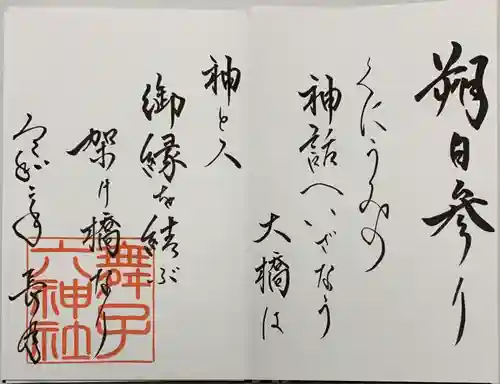 朔日参り
くにうみの
神話へいざなう
大橋は
神と人
御縁を結ぶ
架け橋なり
舞子
六神社